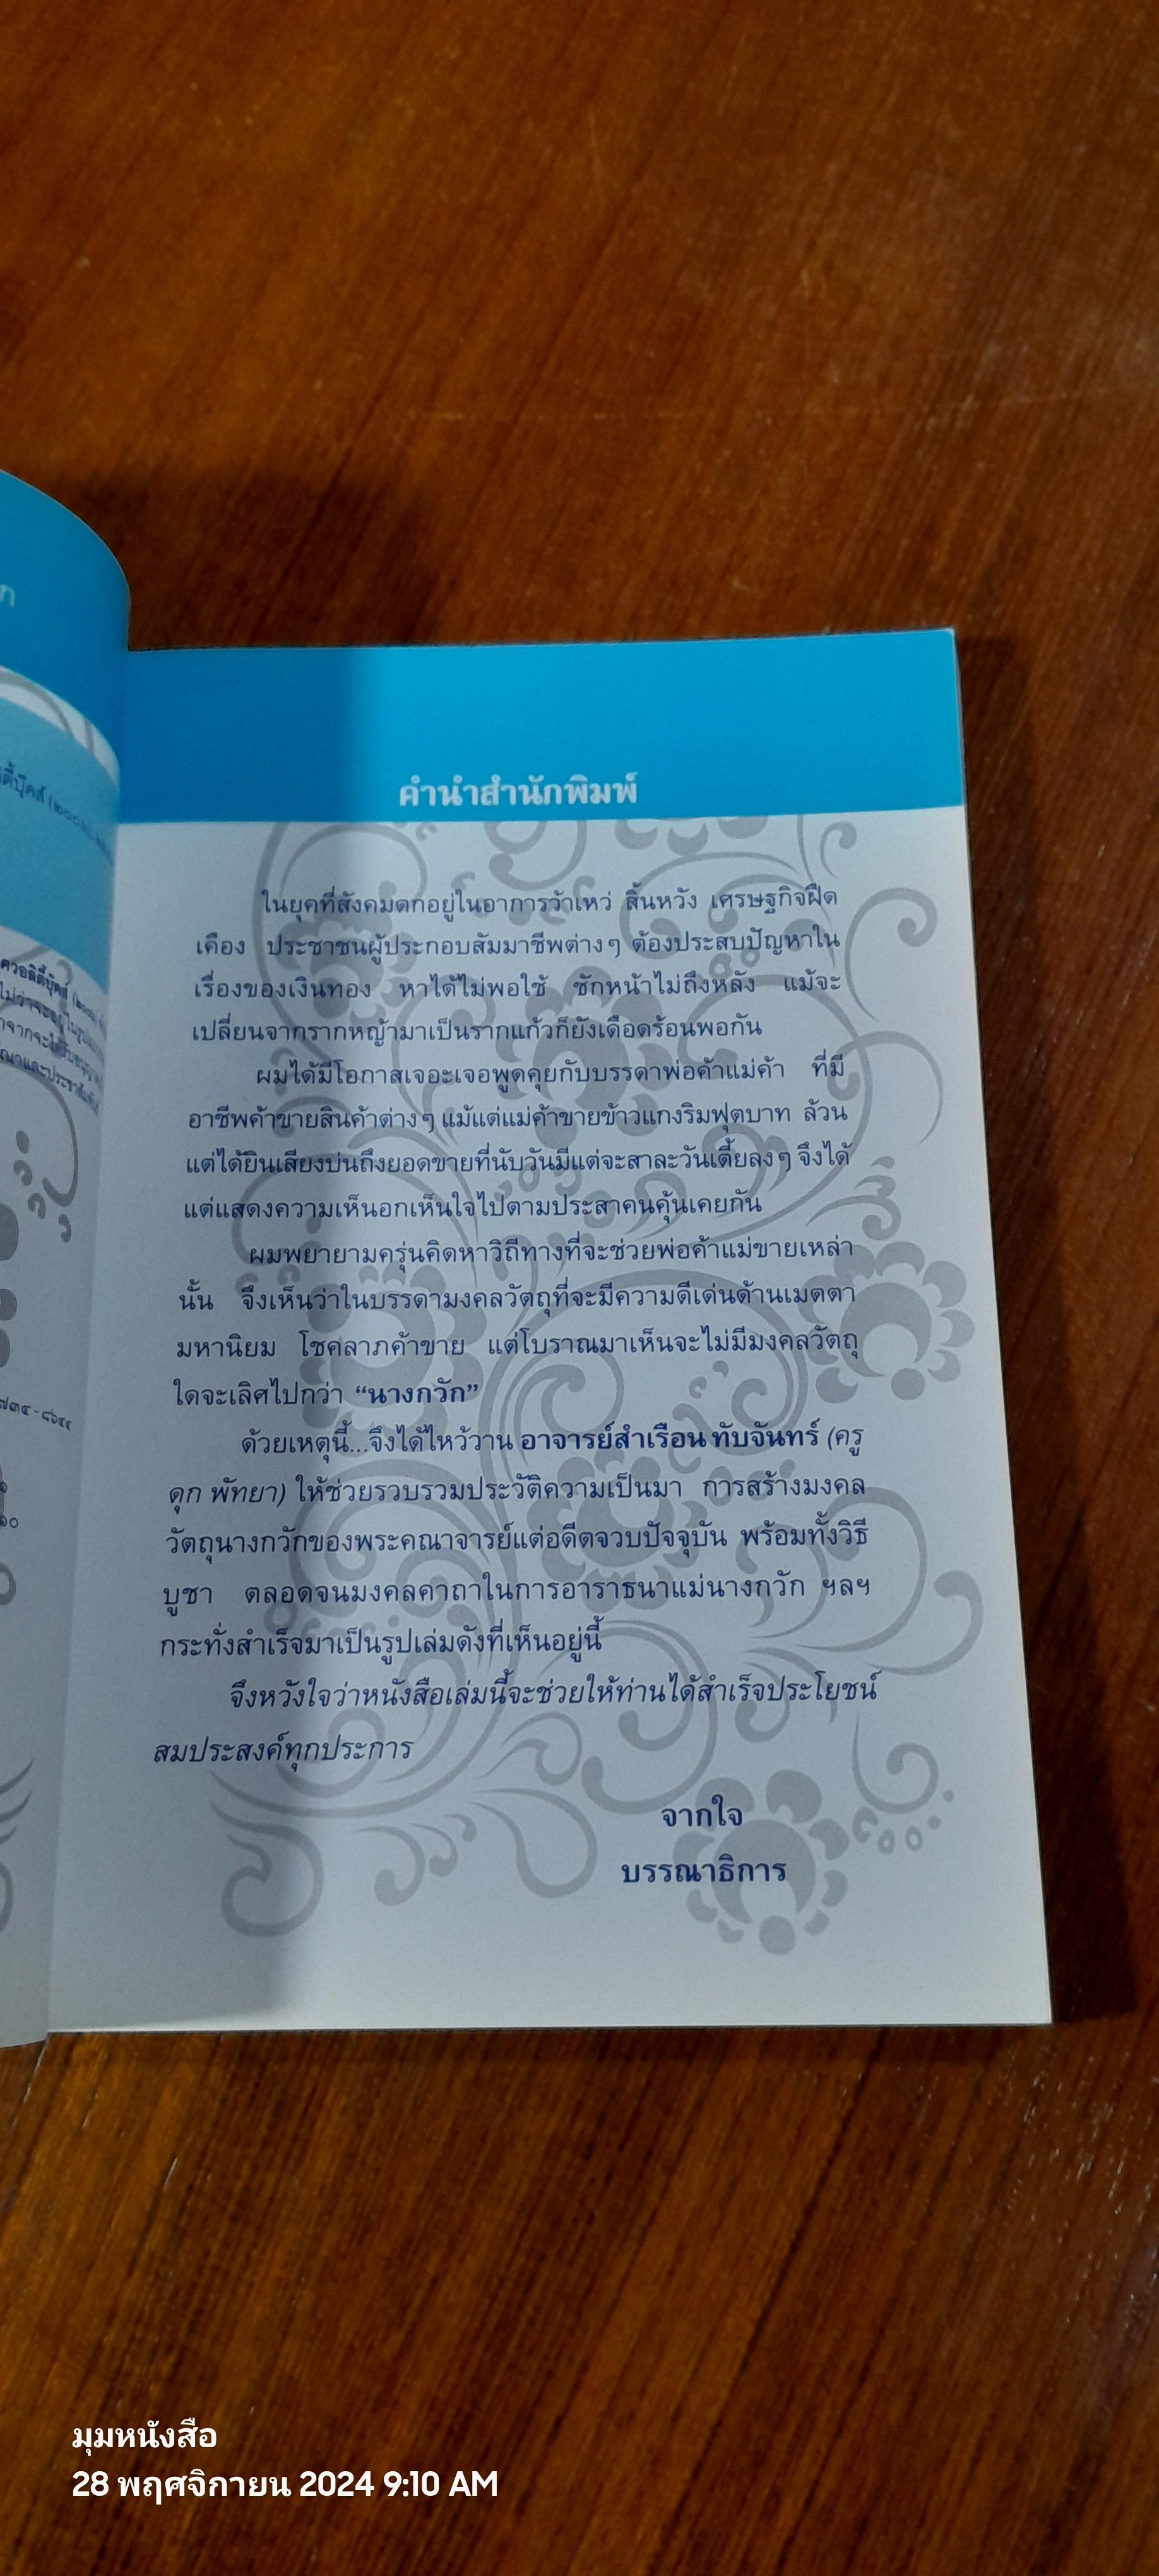 คำนำสำนักพิมพ์
ในยุคที่สังคมตกอยู่ในอาการว้าเหว่ สิ้นหวัง เศรษฐกิจฝืด
เคือง ประชาชนผู้ประกอบสัมมาชีพต่างๆ ต้องประสบปัญหาใน
เรื่องของเงินทอง หาได้ไม่พอใช้ ชักหน้าไม่ถึงหลัง แม้จะ
เปลี่ยนจากรากหญ้ามาเป็นรากแก้วก็ยังเดือดร้อนพอกัน
ผมได้มีโอกาสเจอะเจอพูดคุยกับบรรดาพ่อค้าแม่ค้า ที่มี
อาชีพค้าขายสินค้าต่างๆ แม้แต่แม่ค้าขายข้าวแกงริมฟุตบาท ล้วน
แต่ได้ยินเสียงบ่นถึงยอดขายที่นับวันมีแต่จะสาละวันเตี้ยลงๆ จึงได้
แต่แสดงความเห็นอกเห็นใจไปตามประสาคนคุ้นเคยกัน
ผมพยายามครุ่นคิดหาวิถีทางที่จะช่วยพ่อค้าแม่ขายเหล่า
นั้น จึงเห็นว่าในบรรดามงคลวัตถุที่จะมีความดีเด่นด้านเมตตา
มหานิยม โชคลาภค้าขาย แต่โบราณมาเห็นจะไม่มีมงคลวัตถุ
ใดจะเลิศไปกว่า “นางกวัก”
ด้วยเหตุนี้...จึงได้ไหว้วาน อาจารย์สำเรือน ทับจันทร์ (ครู
ดุก พัทยา) ให้ช่วยรวบรวมประวัติความเป็นมา การสร้างมงคล
วัตถุนางกวักของพระคณาจารย์แต่อดีตจวบปัจจุบัน พร้อมทั้งวิธี
บูชา ตลอดจนมงคลคาถาในการอาราธนาแม่นางกวัก ฯลฯ
กระทั่งสำเร็จมาเป็นรูปเล่มดังที่เห็นอยู่นี้
จึงหวังใจว่าหนังสือเล่มนี้จะช่วยให้ท่านได้สำเร็จประโยชน์
สมประสงค์ทุกประการ
จากใจ
บรรณาธิการ
มุมหนังสือ
28 พฤศจิกายน 2024 9:10 AM